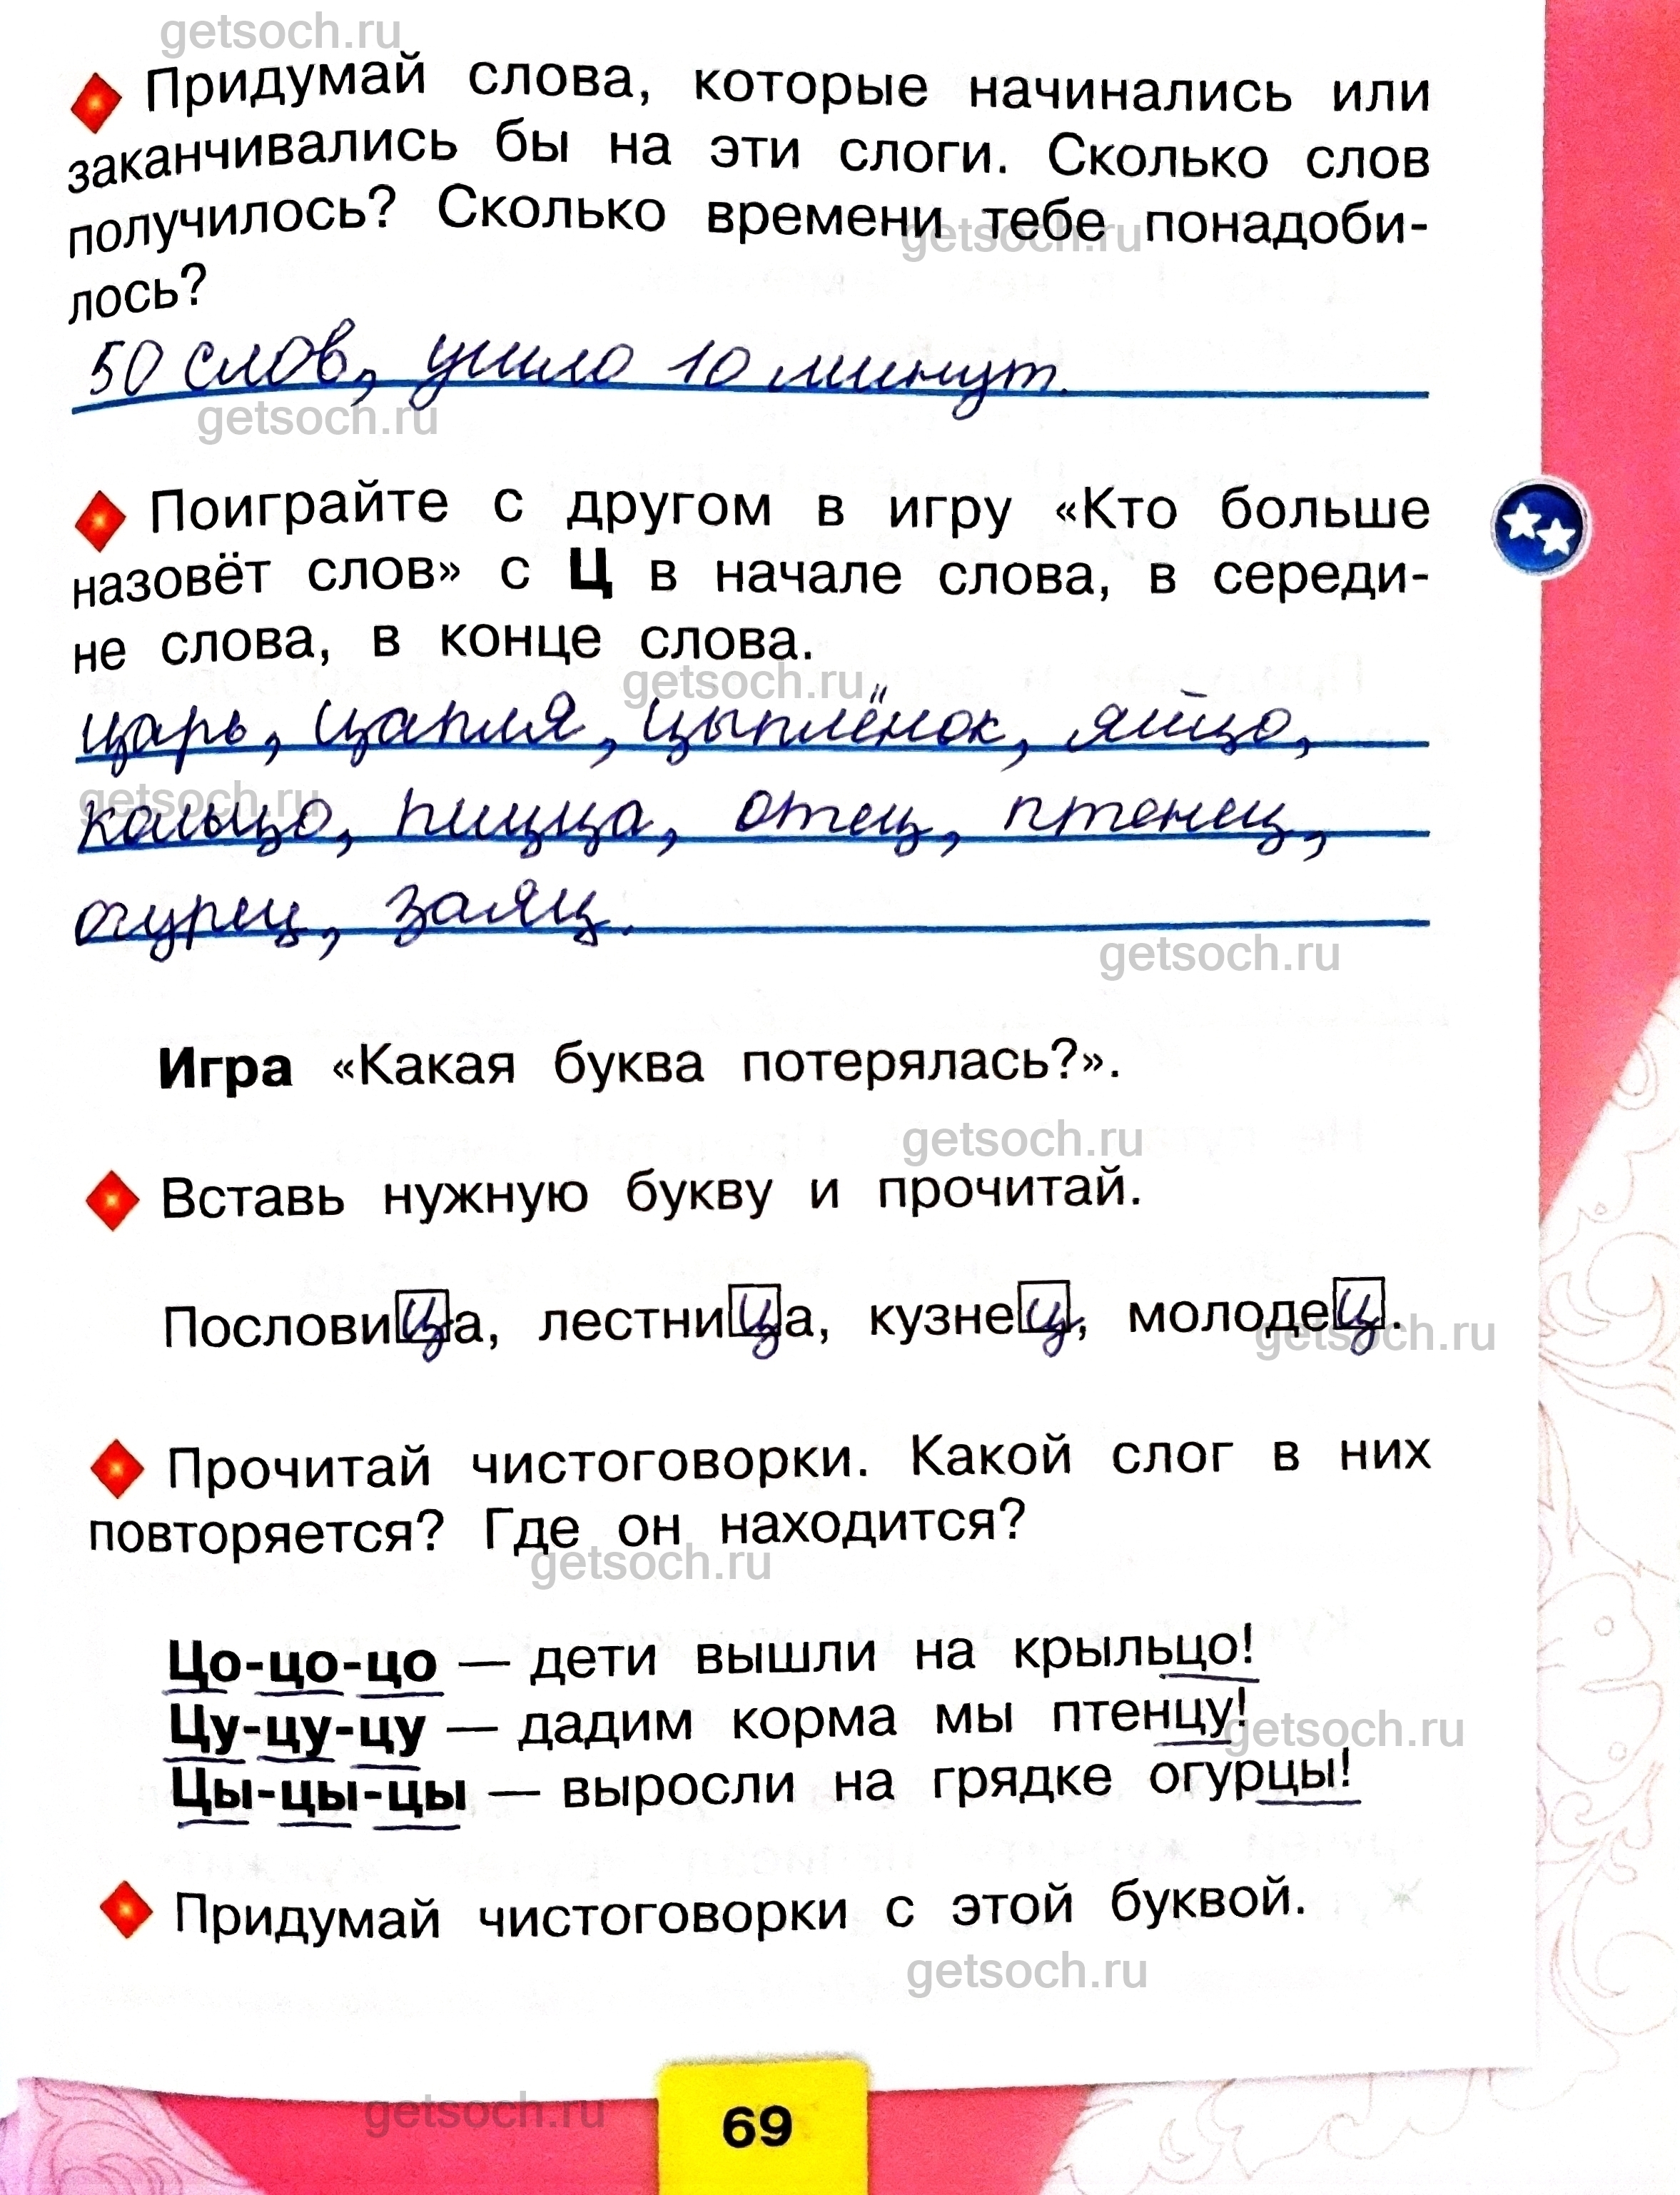 getsoch.ru
Придумай слова, которые начинались или
заканчивались бы на эти слоги. Сколько слов
получилось? Сколько времени тебе понадоби-
getsoch.ru
лось?
50 слов, ушло 10 минут.
getsoch.ru
Поиграйте с другом в игру «Кто больше
назовёт слов» с Ц в начале слова, в середи-
не слова, в конце слова.
getsoch.ru
царь, цапля, цыплёнок, яйцо,
getsoch.ru
кольцо, пицца, отец, птенец,
огурец, заяц.
getsoch.ru
Игра «Какая буква потерялась?».
getsoch.ru
Вставь нужную букву и прочитай.
Пословица, лестница, кузнец, молодец.
getsoch.ru
Прочитай чистоговорки. Какой слог в них
повторяется? Где он находится?
getsoch.ru
Цо-цо-цо — дети вышли на крыльцо!
Цу-цу-цу — дадим корма мы птенцу!
getsoch.ru
Цы-цы-цы — выросли на грядке огурцы!
Придумай чистоговорки с этой буквой.
getsoch.ru
getsoch.ru
69